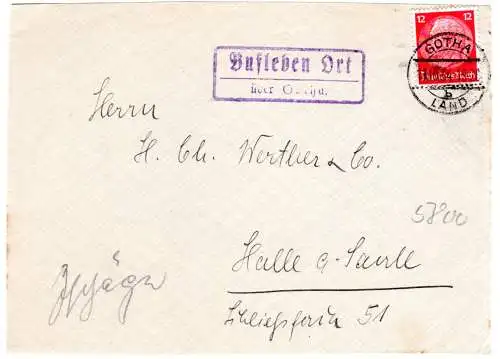 12 12
Deutsches Reich
GOTHA
b
LAND
Bufleben Ort
über Gotha.
Herrn
H. Ch. Werther & Co.
5800
Halle a-Saale
51